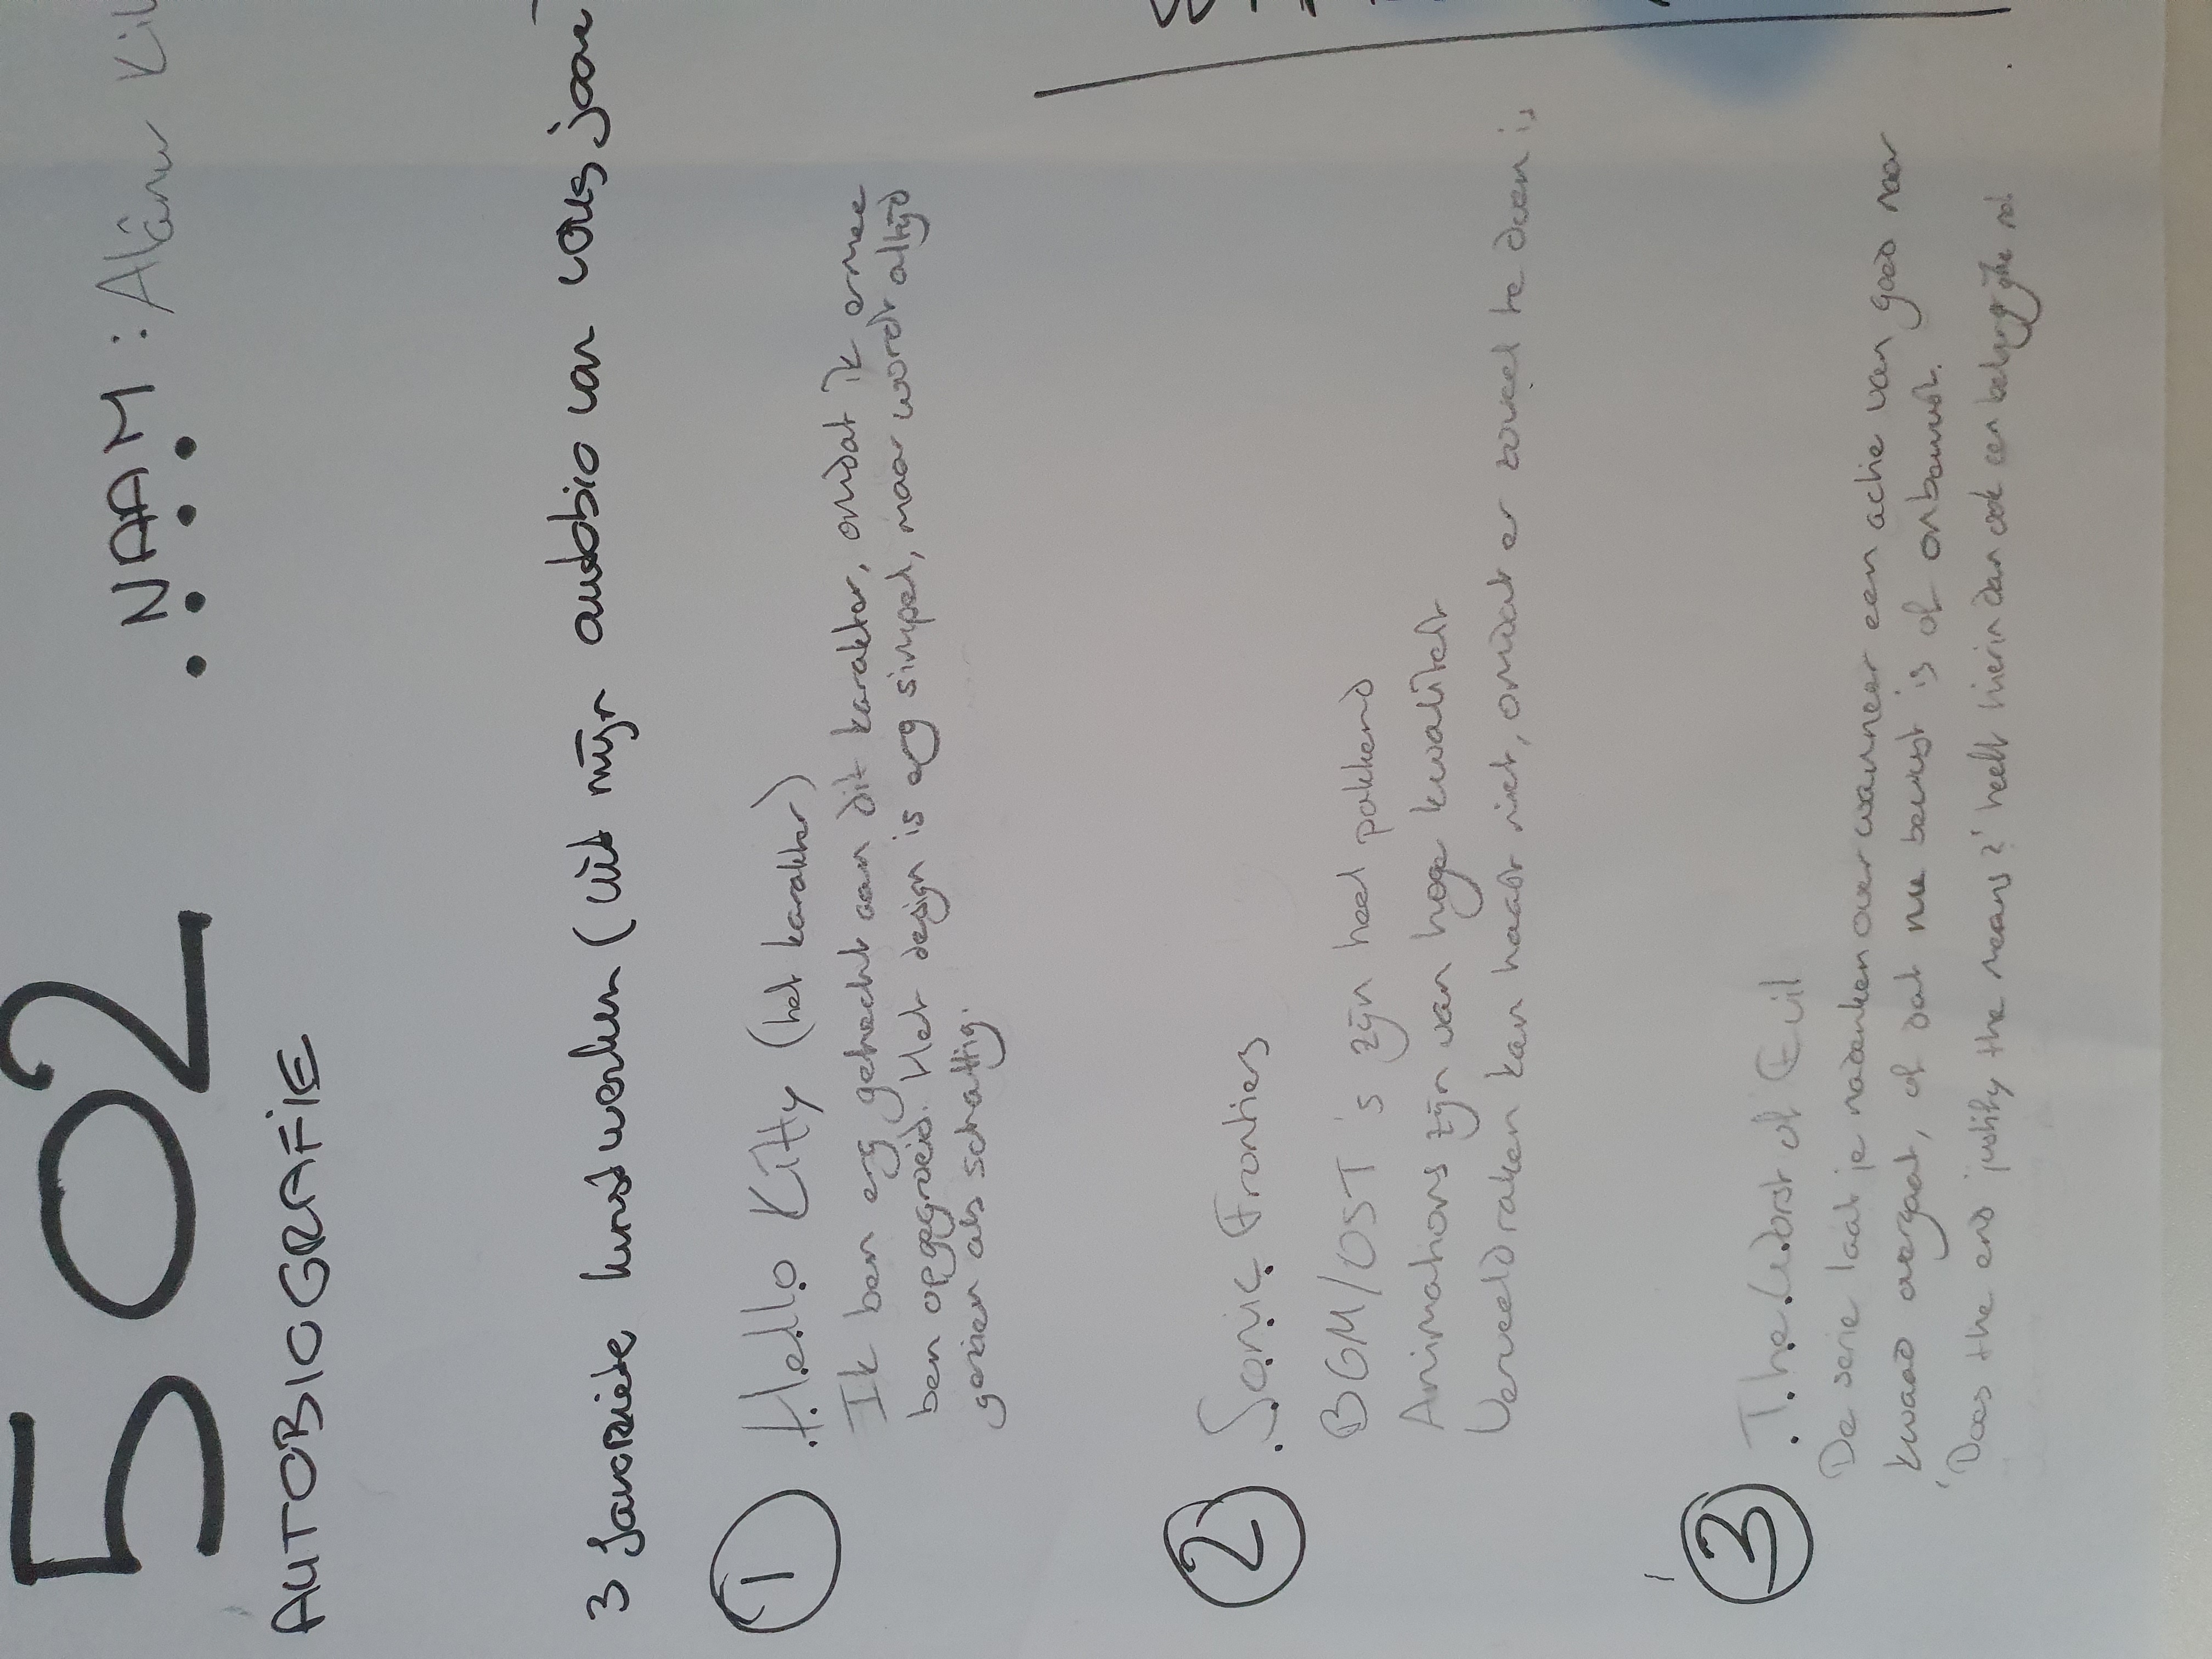 502
NAAM:
AUTOBIOGRAFIE
3 favoriete kunstwerken (uit mijn autobio van vorig jaar)
1 Hello Kitty (het karakter)
Ik ben erg gehecht aan dit karakter, omdat ik ermee
ben opgegroeid. Het design is erg simpel, maar wordt altijd
gezien als schattig.
2 Sonic Frontiers
BGM/OST's zijn heel pakkend
Animations zijn van hoge kwaliteit
Verveeld raken kan haast niet, omdat er zoveel te doen is
3 The Worst of Evil
De serie laat je nadenken over wanneer een actie van goed naar
kwaad overgaat, of dat nu bewust is of onbewust.
'Does the end justify the means?' heeft hierin dan ook een belangrijke rol